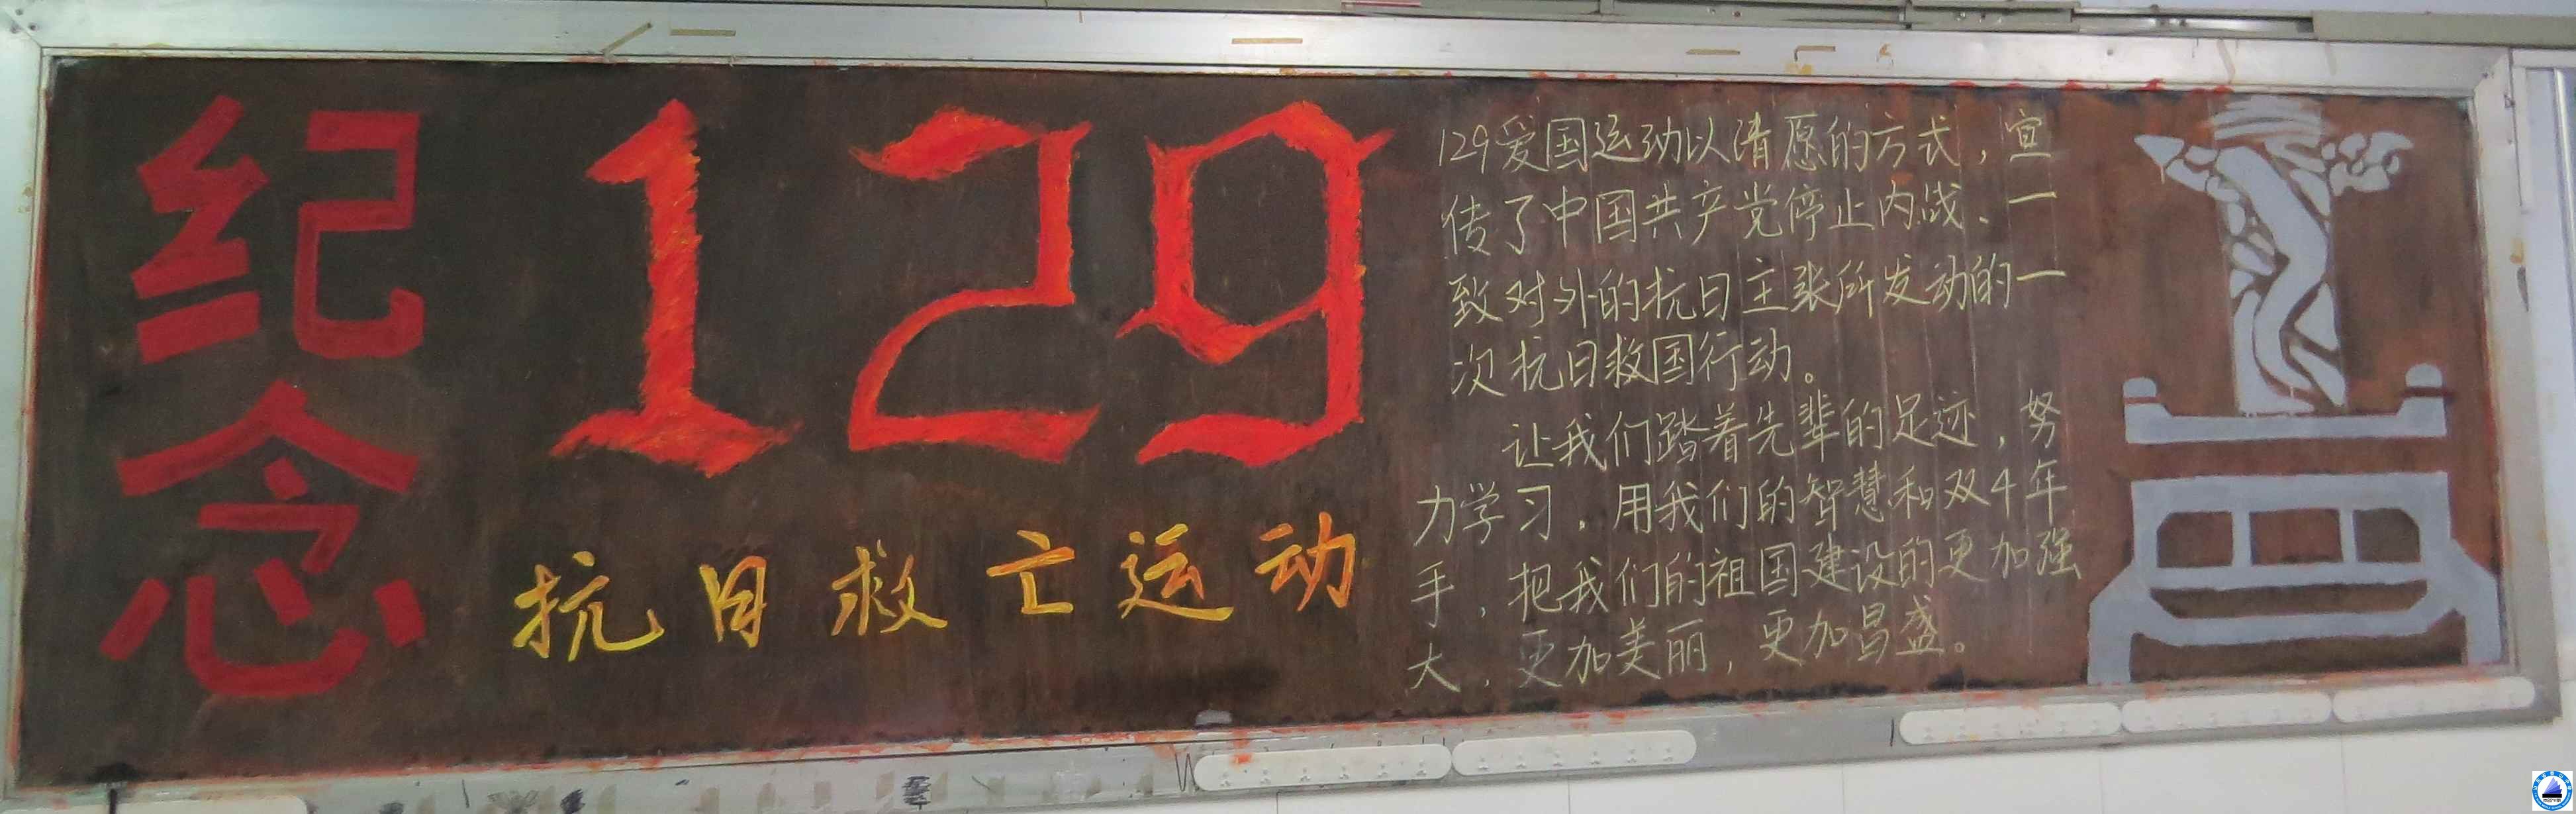 纪念
129
抗日救亡运动
129爱国运动以请愿的方式，宣
传了中国共产党停止内战、一
致对外的抗日主张所发动的一
次抗日救国行动。
让我们踏着先辈的足迹，努
力学习，用我们的智慧和双4年
手，把我们的祖国建设的更加强
大，更加美丽，更加昌盛。